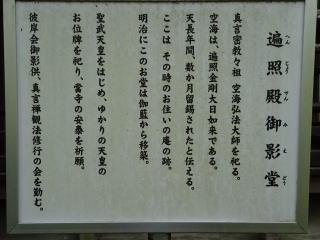 遍照殿御影堂
へんじょうでんみえどう
真言宗教々祖 空海弘法大師を祀る。
空海は、遍照金剛大日如来である。
天長年間、数か月留錫されたと伝える。
ここは その時のお住いの庵の跡。
明治にこのお堂は伽藍から移築。
聖武天皇をはじめ、ゆかりの天皇の
お位牌を祀り、當寺の安泰を祈願。
彼岸会御影供、真言禅観法修行の会を勤む。